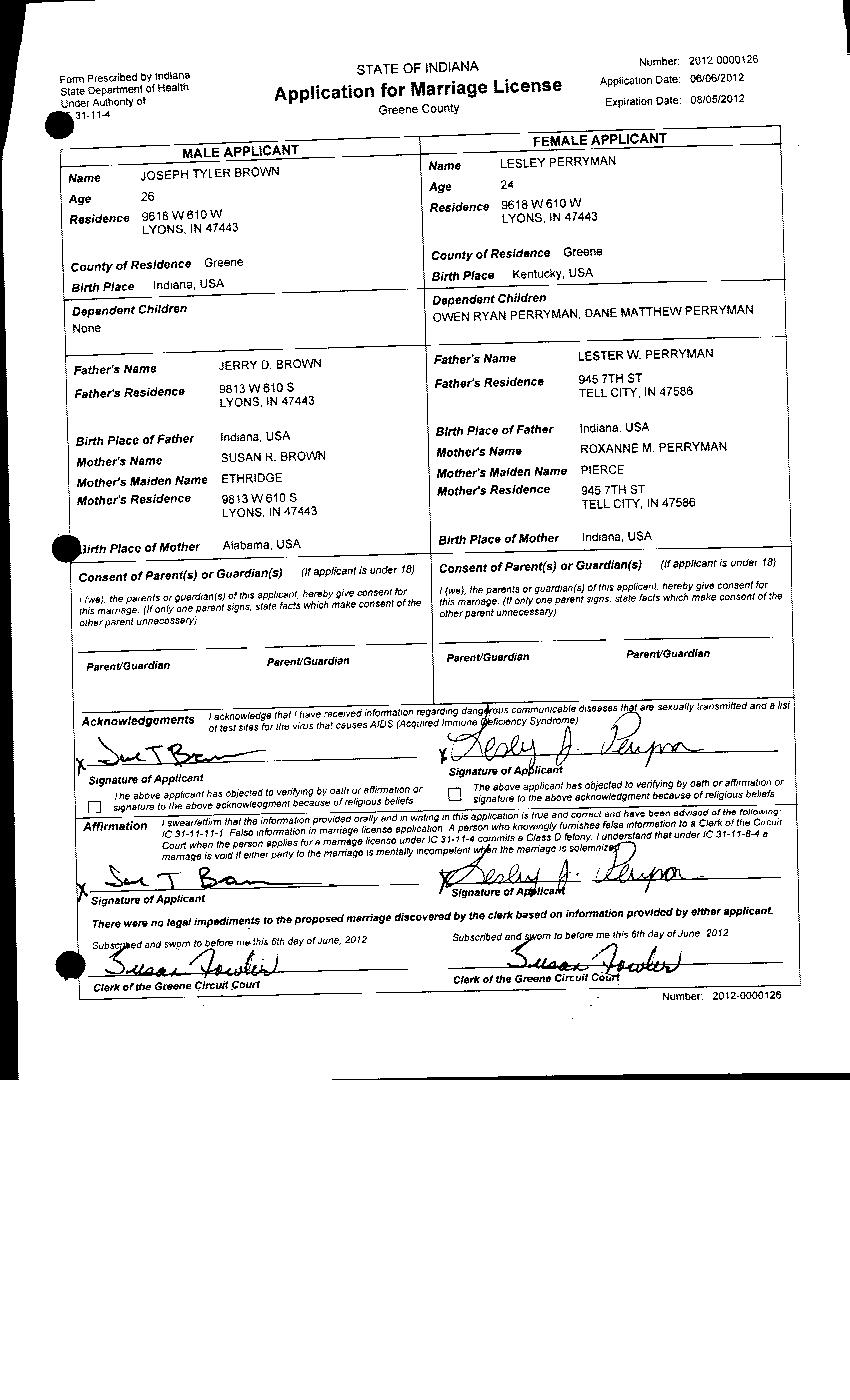 Form Prescribed by Indiana
State Department of Health
Under Authority of
31-11-4
STATE OF INDIANA
Application for Marriage License
Greene County
Number: 2012 0000126
Application Date: 06/06/2012
Expiration Date: 08/05/2012
MALE APPLICANT
Name JOSEPH TYLER BROWN
Age 26
Residence 9618 W 610 W
LYONS, IN 47443
County of Residence Greene
Birth Place Indiana, USA
Dependent Children
None
Father's Name JERRY D. BROWN
Father's Residence 9813 W 610 S
LYONS, IN 47443
Birth Place of Father Indiana, USA
Mother's Name SUSAN R. BROWN
Mother's Maiden Name ETHRIDGE
Mother's Residence 9813 W 610 S
LYONS, IN 47443
Birth Place of Mother Alabama, USA
Consent of Parent(s) or Guardian(s) (If applicant is under 18)
I (we), the parents or guardian(s) of this applicant, hereby give consent for
this marriage. (If only one parent signs, state facts which make consent of the
other parent unnecessary)
Parent/Guardian Parent/Guardian
FEMALE APPLICANT
Name LESLEY PERRYMAN
Age 24
Residence 9618 W 610 W
LYONS, IN 47443
County of Residence Greene
Birth Place Kentucky, USA
Dependent Children
OWEN RYAN PERRYMAN, DANE MATTHEW PERRYMAN
Father's Name LESTER W. PERRYMAN
Father's Residence 945 7TH ST
TELL CITY, IN 47586
Birth Place of Father Indiana, USA
Mother's Name ROXANNE M. PERRYMAN
Mother's Maiden Name PIERCE
Mother's Residence 945 7TH ST
TELL CITY, IN 47586
Birth Place of Mother Indiana, USA
Consent of Parent(s) or Guardian(s) (If applicant is under 18)
I (we), the parents or guardian(s) of this applicant, hereby give consent for
this marriage. (If only one parent signs, state facts which make consent of the
other parent unnecessary)
Parent/Guardian Parent/Guardian
Acknowledgements I acknowledge that I have received information regarding dangerous communicable diseases that are sexually transmitted and a list
of test sites for the virus that causes AIDS (Acquired Immune Deficiency Syndrome)
X
Signature of Applicant
The above applicant has objected to verifying by oath or affirmation or
signature to the above acknowledgment because of religious beliefs
X Lesley J.
Signature of Applicant
The above applicant has objected to verifying by oath or affirmation or
signature to the above acknowledgment because of religious beliefs
Affirmation I swear/affirm that the information provided orally and in writing in this application is true and correct and have been advised of the following:
IC 31-11-11-1 False information in marriage license application. A person who knowingly furnishes false information to a Clerk of the Circuit
Court when the person applies for a marriage license under IC 31-11-4 commits a Class D felony. I understand that under IC 31-11-8-4 a
marriage is void if either party to the marriage is mentally incompetent when the marriage is solemnized
X
Signature of Applicant
X Lesley J.
Signature of Applicant
There were no legal impediments to the proposed marriage discovered by the clerk based on information provided by either applicant.
Subscribed and sworn to before me this 6th day of June, 2012
Susan Fowler
Clerk of the Greene Circuit Court
Subscribed and sworn to before me this 6th day of June 2012
Susan Fowler
Clerk of the Greene Circuit Court
Number: 2012-0000126